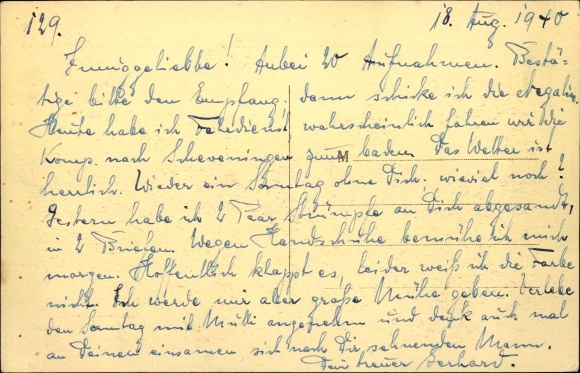 129. 18. Aug. 1940
Inniggeliebte! Anbei 20 Aufnahmen. Bestä-
tige bitte den Empfang, dann schicke ich die Negative.
Heute habe ich Fahrdienst wahrscheinlich fahren wir die
Komp. nach Scheveningen zum baden. Das Wetter ist
M
herrlich. Wieder ein Sonntag ohne Dich. wieviel noch?
Gestern habe ich 2 Paar Strümpfe an Dich abgesandt,
in 2 Briefen. Wegen Handschuhe bemühe ich mich
morgen. Hoffentlich klappt es, leider weiß ich die Farbe
nicht. Ich werde mir aber große Mühe geben. Verlebe
den Sonntag mit Mutti angenehm und denk auch mal
an Deinen einsamen sich nach Dir sehnenden Mann.
Dein treuer Gerhard.